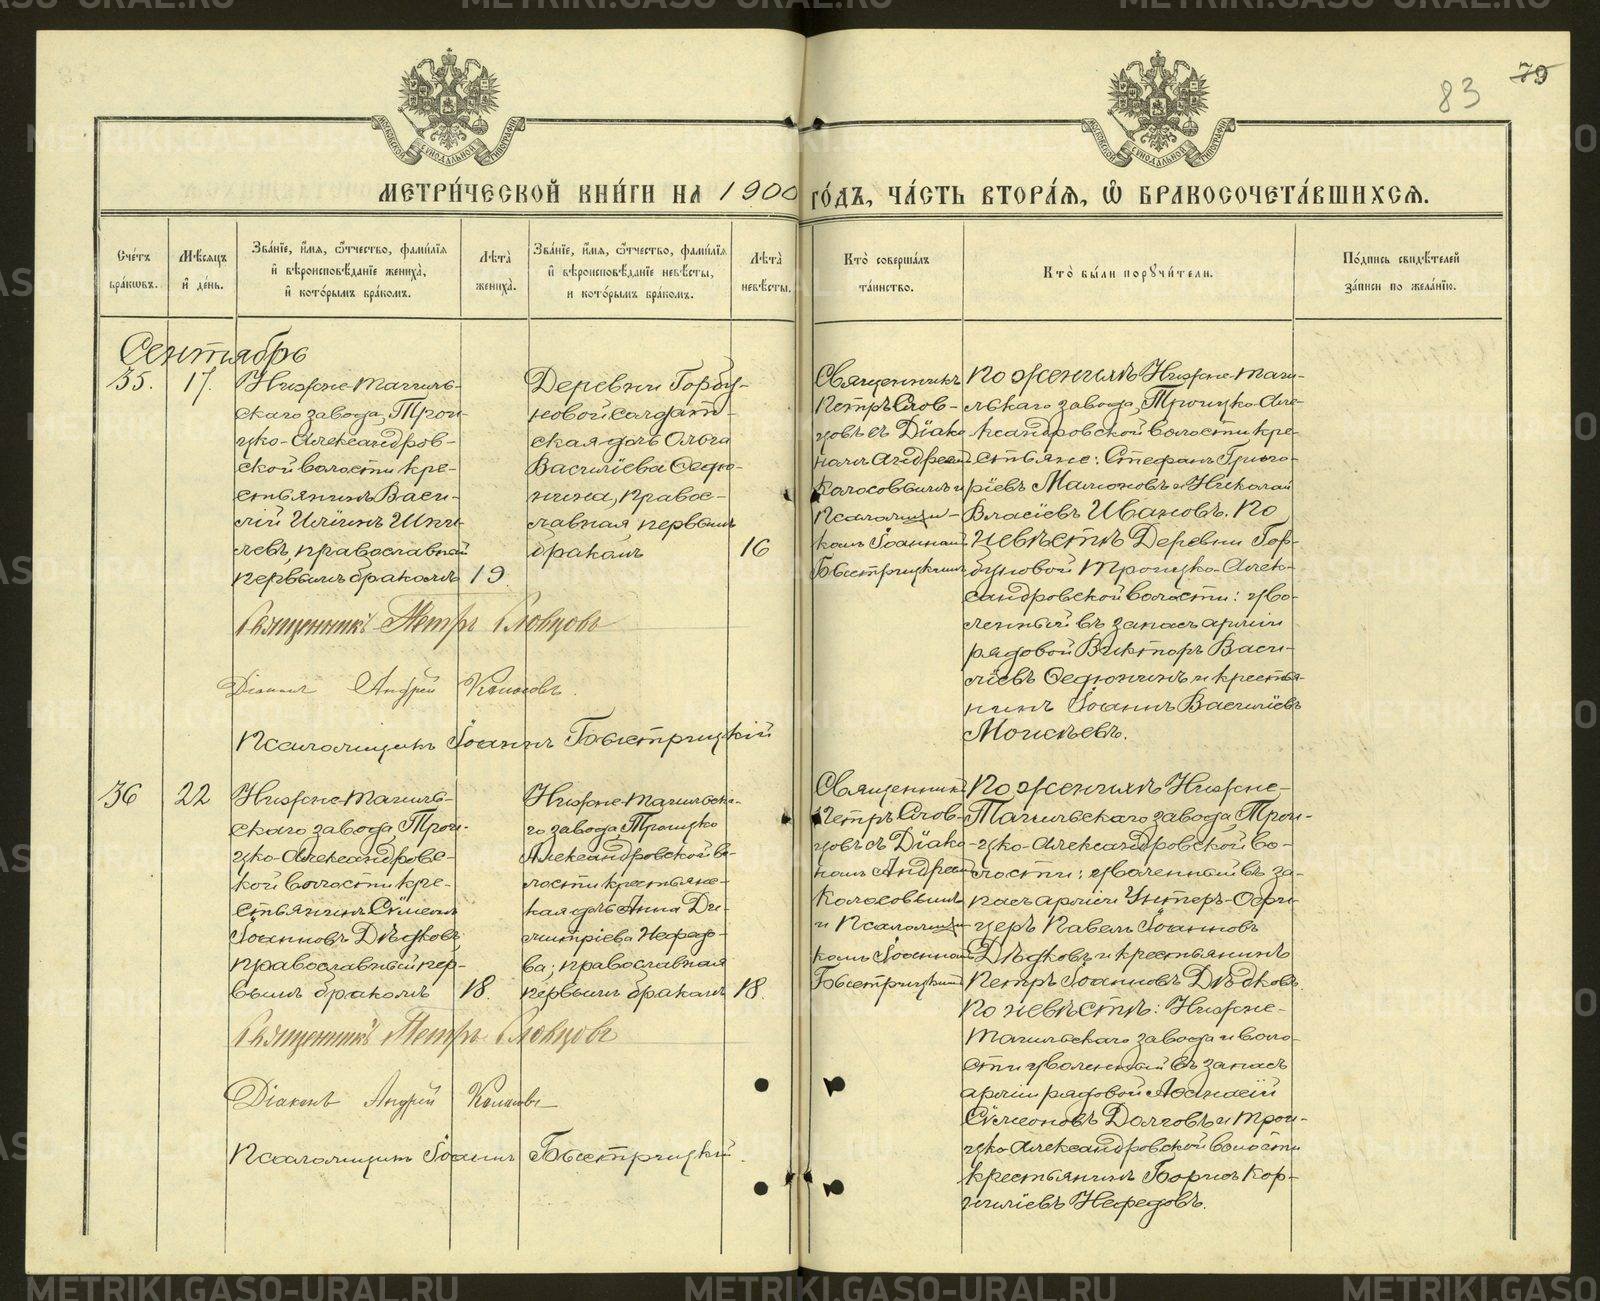 83 79
МЕТРИ́ЧЕСКОЙ КНИ́ГИ НА 1900 ГО́ДЪ, ЧА́СТЬ ВТОРА́Я, Ѡ БРАКОСОЧЕТА́ВШИХСЯ.
Сче́тъ бра́кѡвъ.
Мѣ́сяцъ и҆ де́нь.
Зва́нїе, и҆́мя, ѻ҆́тчество, фами́лїя
и҆ вѣроисповѣ́данїе жениха̀,
и҆ кото́рымъ бра́комъ.
Лѣ́та жениха̀.
Зва́нїе, и҆́мя, ѻ҆́тчество, фами́лїя
и҆ вѣроисповѣ́данїе невѣ́сты,
и кото́рымъ бра́комъ.
Лѣ́та невѣ́сты.
Кто̀ соверша́лъ
та́инство.
Кто̀ бы́ли порꙋчи́тели.
По́дпись свидѣ́телей
за́писи по жела́нїю.
Сентябрь
35.
17.
Нижне-Тагиль-
скаго завода, Трои-
цко-Александров-
ской волости кре-
стьянинъ Васи-
лій Иліинъ
православный
первымъ бракомъ
19.
Деревни Горбу-
новой солдат-
ская дочь Ольга
Василіева Федю-
нина, правос-
лавная первымъ
бракомъ
16
Священникъ
Петръ Слов-
цовъ съ Діако
номъ Андреемъ
Колосовымъ и
Псаломщи-
комъ Іоанномъ
Быстрицкимъ
По женихѣ Нижне-Таги-
льскаго завода, Троицко-Але-
ксандровской волости кре-
стьяне: Стефанъ Григо-
ріевъ Мамоновъ и Николай
Власіевъ Ивановъ. По
невѣстѣ Деревни Гор-
буновой Троицко-Алек-
сандровской волости: уво-
ленный въ запасъ арміи
рядовой Викторъ Васи-
ліевъ Федюнинъ и крестья-
нинъ Іоаннъ Василіевъ
Моисѣевъ.
Священникъ Петръ Словцовъ
Діаконъ Андрей Колосовъ.
Псаломщикъ Іоаннъ Быстрицкій
36
22
Нижне-Тагиль-
скаго завода, Трои-
цко-Александровс-
кой волости кре-
стьянинъ Сѵмеонъ
Іоанновъ Дѣдковъ,
православный пер-
вымъ бракомъ
18.
Нижне-Тагильска-
го завода, Троицко
Александровской во-
лости крестьянс-
кая дочь Анна Ди-
митріева Нефедо-
ва; православная
первымъ бракомъ
18.
Священникъ
Петръ Слов-
цовъ съ Діако-
номъ Андреемъ
Колосовымъ
и Псаломщи-
комъ Іоанномъ
Быстрицкимъ
По женихѣ Нижне-
Тагильскаго завода, Трои-
цко-Александровской во-
лости: уволенный въ за-
пасъ арміи Унтеръ-Офи-
церъ Павелъ Іоанновъ
Дѣдковъ и крестьянинъ
Петръ Іоанновъ Дѣдковъ.
По невѣстѣ: Нижне-
Тагильскаго завода и воло-
сти уволенный въ запасъ
арміи рядовой Афанасій
Сѵмеоновъ Долговъ и Трои-
цко-Александровской волости
крестьянинъ Борисъ Кор-
ниліевъ Нефедовъ.
Священникъ Петръ Словцовъ
Діаконъ Андрей Колосовъ
Псаломщикъ Іоаннъ Быстрицкій.
METRIKI.GASO-URAL.RU